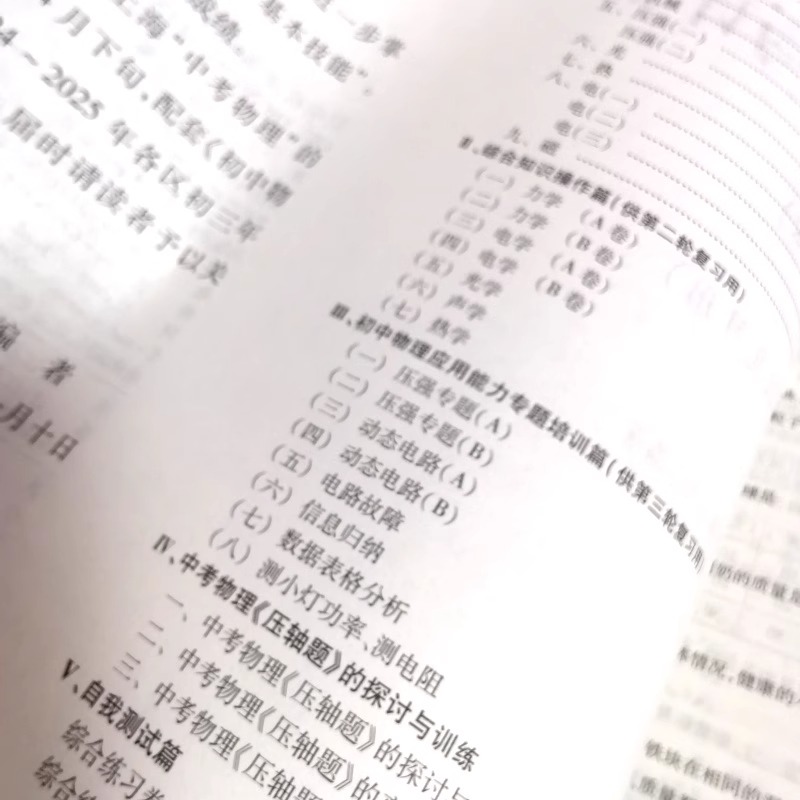 一步掌
基本技能”。
成绩。
上海“中考物理”的
月下旬，配套《初中物
24－2025 年各区初三年
届时请读者予以关
编 者
月十日
五、压强(一)
压强(二)
六、光
七、热
八、电(一)
电(二)
电(三)
九、磁
Ⅱ、综合知识操作篇(供第二轮复习用)
(一) 力学 (A 卷)
(二) 力学 (B 卷)
(三) 电学 (A 卷)
(四) 电学 (B 卷)
(五) 光学
(六) 声学
(七) 热学
Ⅲ、初中物理应用能力专题培训篇(供第三轮复习用)
(一) 压强专题(A)
(二) 压强专题(B)
(三) 动态电路(A)
(四) 动态电路(B)
(五) 电路故障
(六) 信息归纳
(七) 数据表格分析
(八) 测小灯功率、测电阻
Ⅳ、中考物理《压轴题》的探讨与训练
一、中考物理《压轴题》的探讨与
二、中考物理《压轴题》的
三、中考物理《压轴题》
Ⅴ、自我测试篇
综合练习卷
综合
的质量是
情况，健康的
铁块在相同的
质量